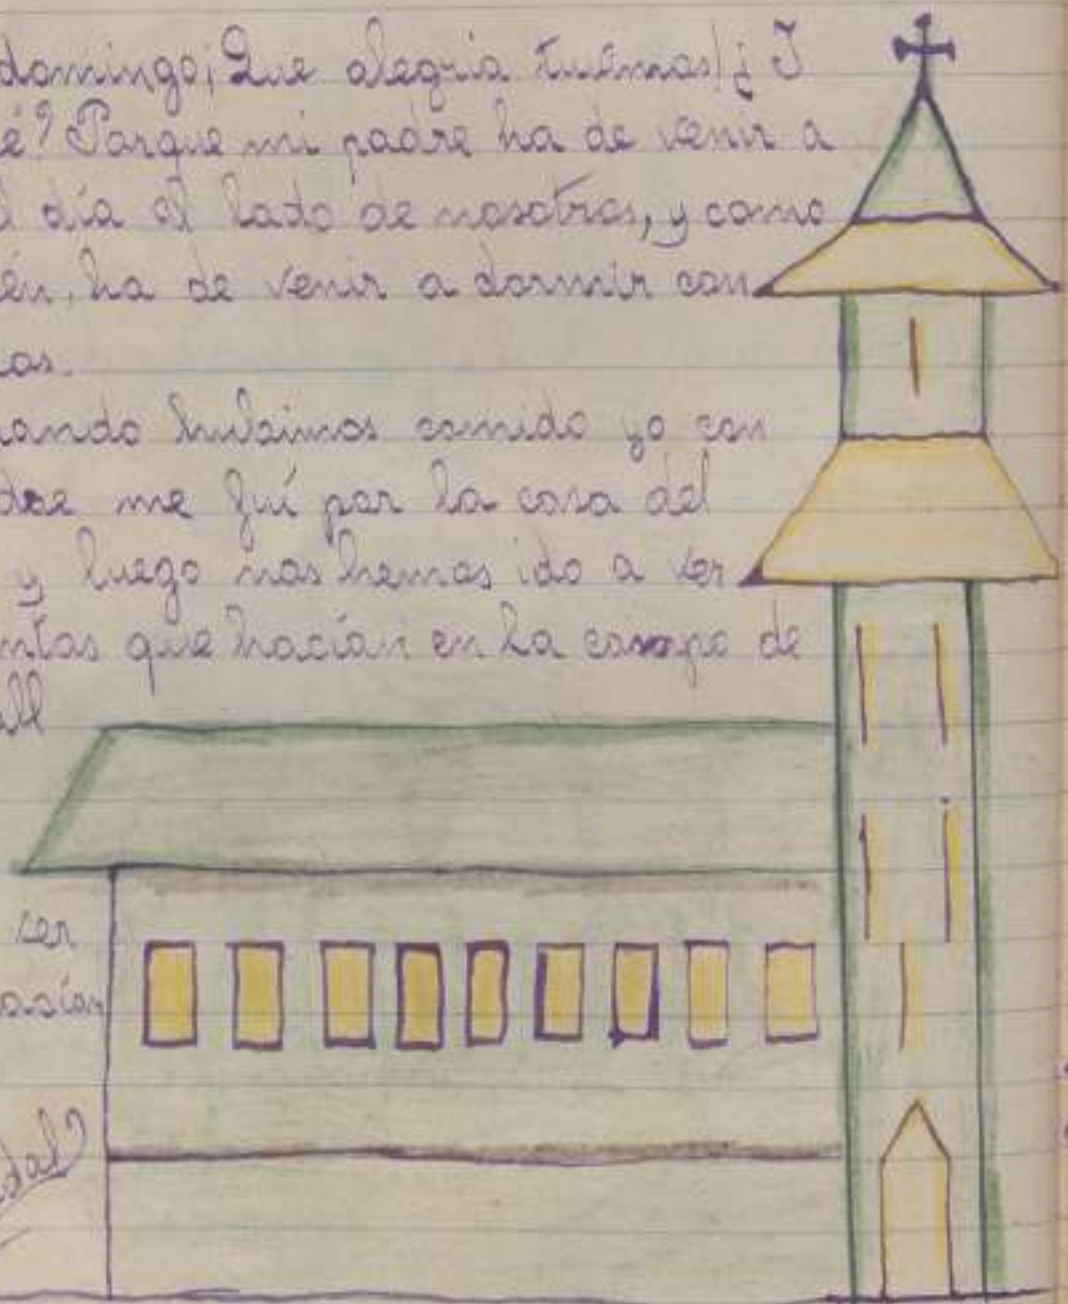 domingo ¡Que alegría tuvimos! ¿I
é? Porque mi padre ha de venir a
l día al lado de nosotros, y como
én, ha de venir a dormir con
os.
uando hubimos comido yo con
dre me fuí por la casa del
y luego nos hemos ido a ver
ntas que hacían en la campo de
all
ver
hacían